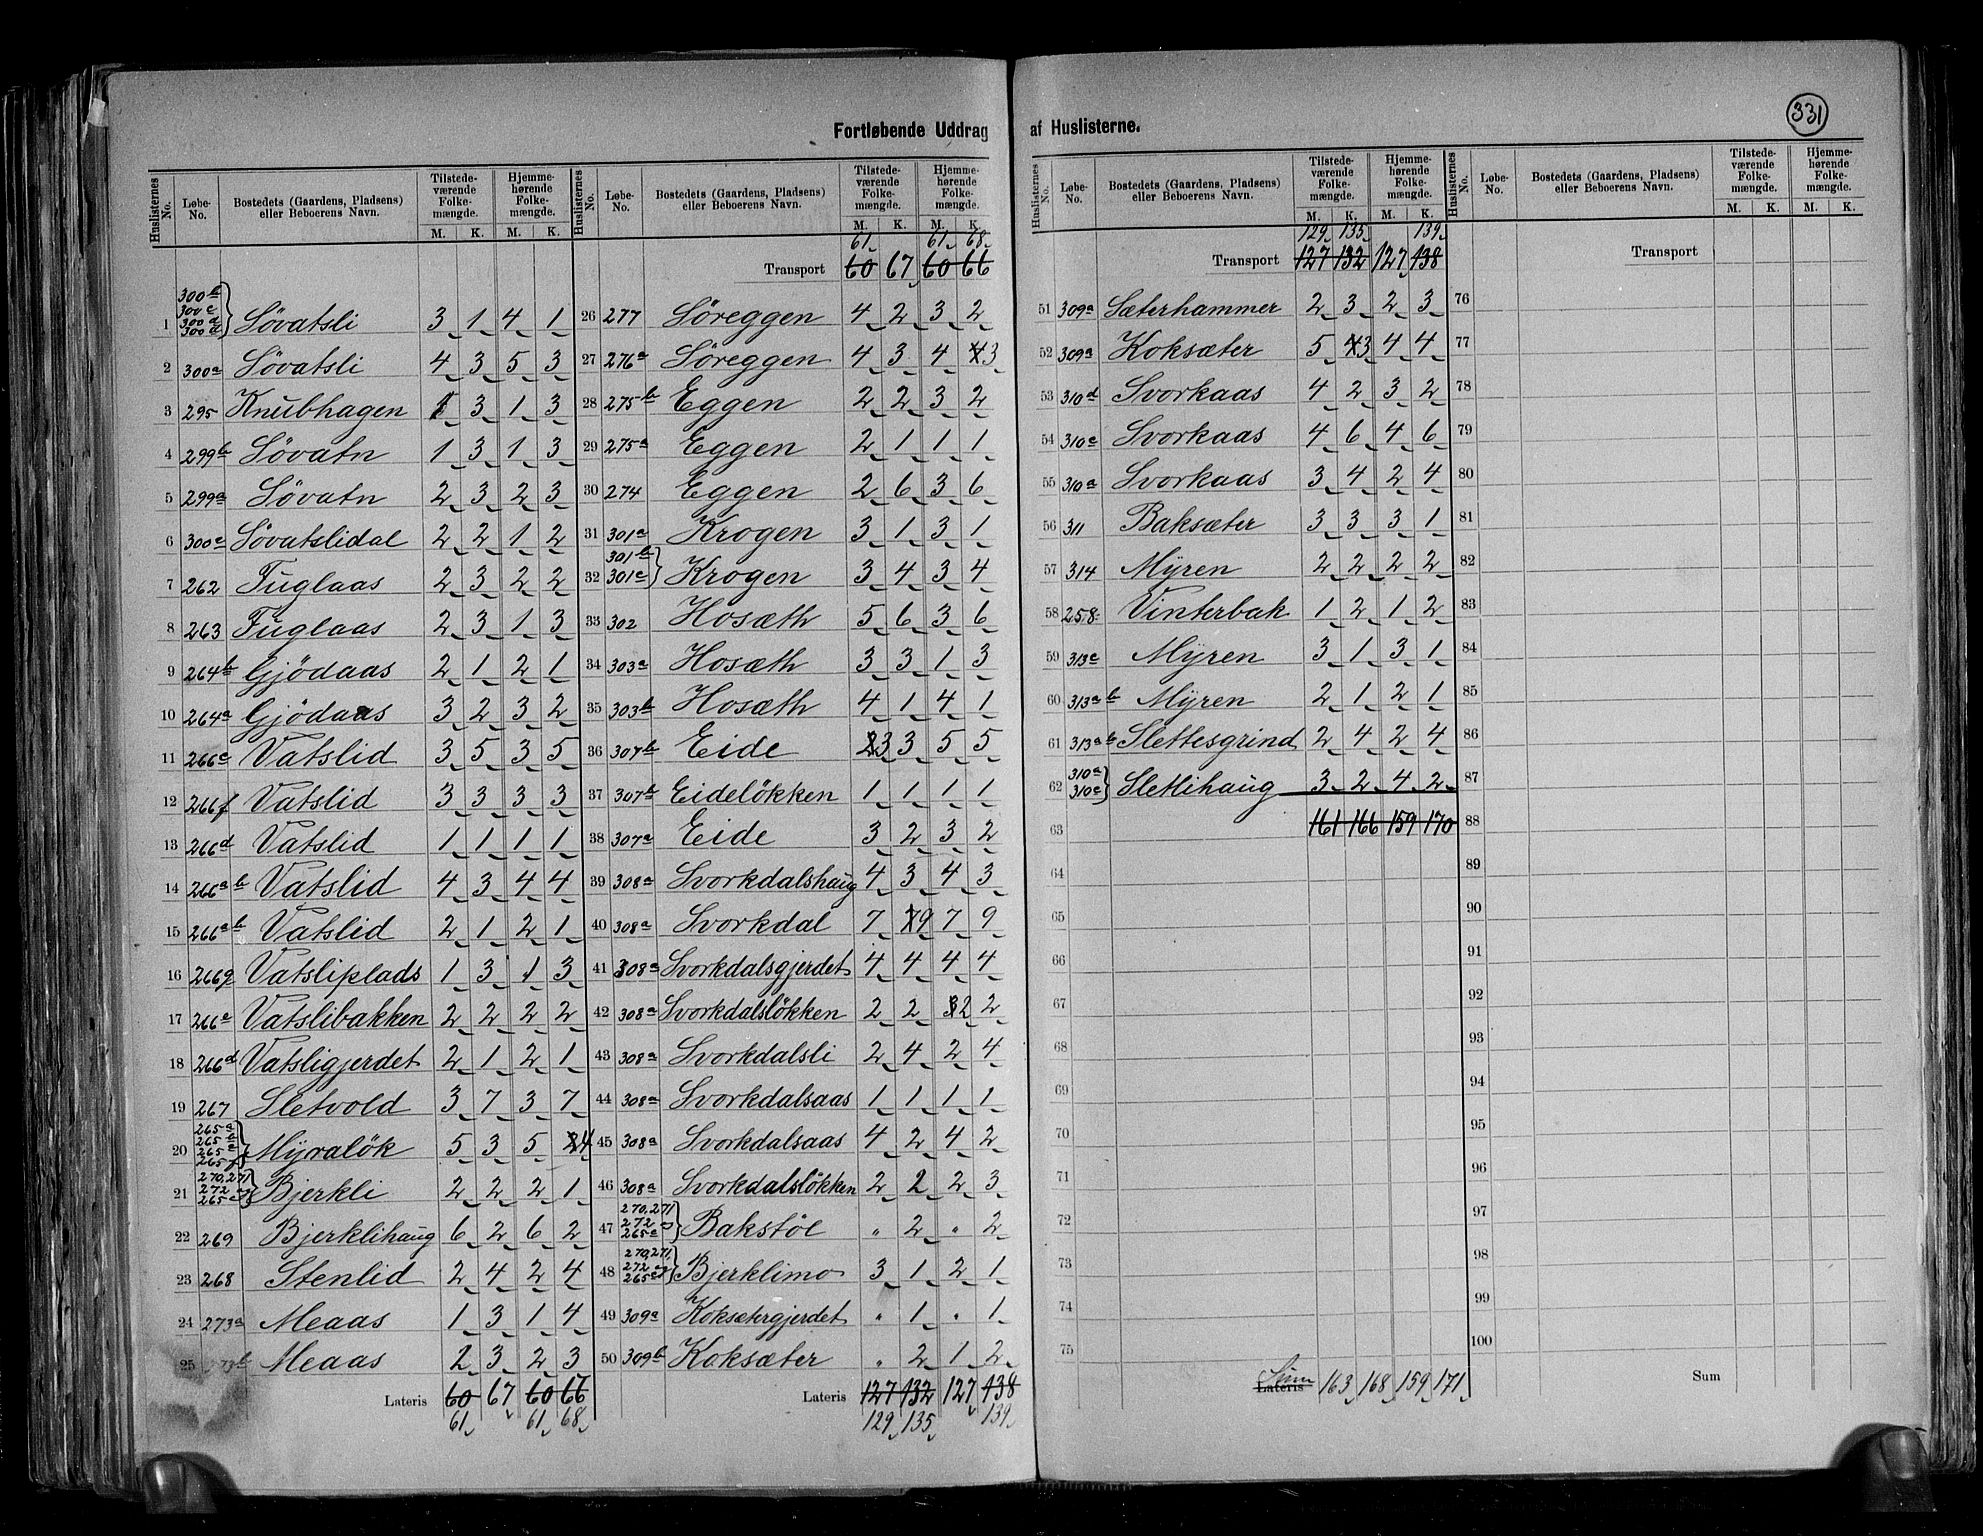 331
Fortløbende Uddrag af Huslisterne.
Huslisternes No. Løbe-No. Bostedets (Gaardens, Pladsens) eller Beboerens Navn. Tilstedeværende Folkemængde. M. K. Hjemmehørende Folkemængde. M. K.
1 300b 300c 300d 300d Søvatsli 3 1 4 1
2 300a Søvatsli 4 3 5 3
3 295 Knubhagen 1 3 1 3
4 299b Søvatn 1 3 1 3
5 299a Søvatn 2 3 2 3
6 300e Søvatslidal 2 2 1 2
7 262 Fuglaas 2 3 2 2
8 263 Fuglaas 2 3 1 3
9 264b Gjödaas 2 1 2 1
10 264a Gjödaas 3 2 3 2
11 266c Vatslid 3 5 3 5
12 266f Vatslid 3 3 3 3
13 266d Vatslid 1 1 1 1
14 266ab Vatslid 4 3 4 4
15 266ab Vatslid 2 1 2 1
16 266g Vatsliplads 1 3 1 3
17 266e Vatslibakken 2 2 2 2
18 266d Vatsligjerdet 2 1 2 1
19 267 Sletvold 3 7 3 7
20 265a 265b 265e 265f Myraløk 5 3 5 4
21 270,271 272 og 265c Bjerkli 2 2 2 1
22 269 Bjerklihaug 6 2 6 2
23 268 Stenlid 2 4 2 4
24 273a Meaas 1 3 1 4
25 273b Meaas 2 3 2 3
Lateris 60 67 60 66
61 61 68
Huslisternes No. Løbe-No. Bostedets (Gaardens, Pladsens) eller Beboerens Navn. Tilstedeværende Folkemængde. M. K. Hjemmehørende Folkemængde. M. K.
61 61 68
Transport 60 67 60 66
26 277 Søreggen 4 2 3 2
27 276a Søreggen 4 3 4 3
28 275b Eggen 2 2 3 2
29 275a Eggen 2 1 1 1
30 274 Eggen 2 6 3 6
31 301a Krogen 3 1 3 1
32 301b 301c Krogen 3 4 3 4
33 302 Hosæth 5 6 3 6
34 303a Hosæth 3 3 1 3
35 303b Hosæth 4 1 4 1
36 307b Eide 3 3 5 5
37 307b Eidelökken 1 1 1 1
38 307a Eide 3 2 3 2
39 308a Svorkdalshaug 4 3 4 3
40 308a Svorkdal 7 9 7 9
41 308a Svorkdalsgjerdet 4 4 4 4
42 308a Svorkdalslökken 2 2 2 2
43 308a Svorkdalsli 2 4 2 4
44 308a Svorkdalsaas 1 1 1 1
45 308a Svorkdalsaas 4 2 4 2
46 308a Svorkdalslökken 2 2 2 3
47 270,271 272 265c Bakstöe " 2 " 2
48 270,271, 272 og 265c Bjerklimo 3 1 2 1
49 309a Koksætergjerdet " 1 " 1
50 309b Koksæter " 2 1 2
Lateris 127 132 127 138
129 135 139
Huslisternes No. Løbe-No. Bostedets (Gaardens, Pladsens) eller Beboerens Navn. Tilstedeværende Folkemængde. M. K. Hjemmehørende Folkemængde. M. K.
129 135 139
Transport 127 132 127 138
51 309a Sæterhammer 2 3 2 3
52 309a Koksæter 5 3 4 4
53 310d Svorkaas 4 2 3 2
54 310c Svorkaas 4 6 4 6
55 310a Svorkaas 3 4 2 4
56 311 Baksæter 3 3 3 1
57 314 Myren 2 2 2 2
58 258 Vinterbak 1 2 1 2
59 313c Myren 3 1 3 1
60 313ab Myren 2 1 2 1
61 313ab Slettesgrind 2 4 2 4
62 310a 310c Sletlihaug 3 2 4 2
63 161 166 159 170
64
65
66
67
68
69
70
71
72
73
74
75
Lateris Sum 163 168 159 171
Huslisternes No. Løbe-No. Bostedets (Gaardens, Pladsens) eller Beboerens Navn. Tilstedeværende Folkemængde. M. K. Hjemmehørende Folkemængde. M. K.
Transport
76
77
78
79
80
81
82
83
84
85
86
87
88
89
90
91
92
93
94
95
96
97
98
99
100
Sum